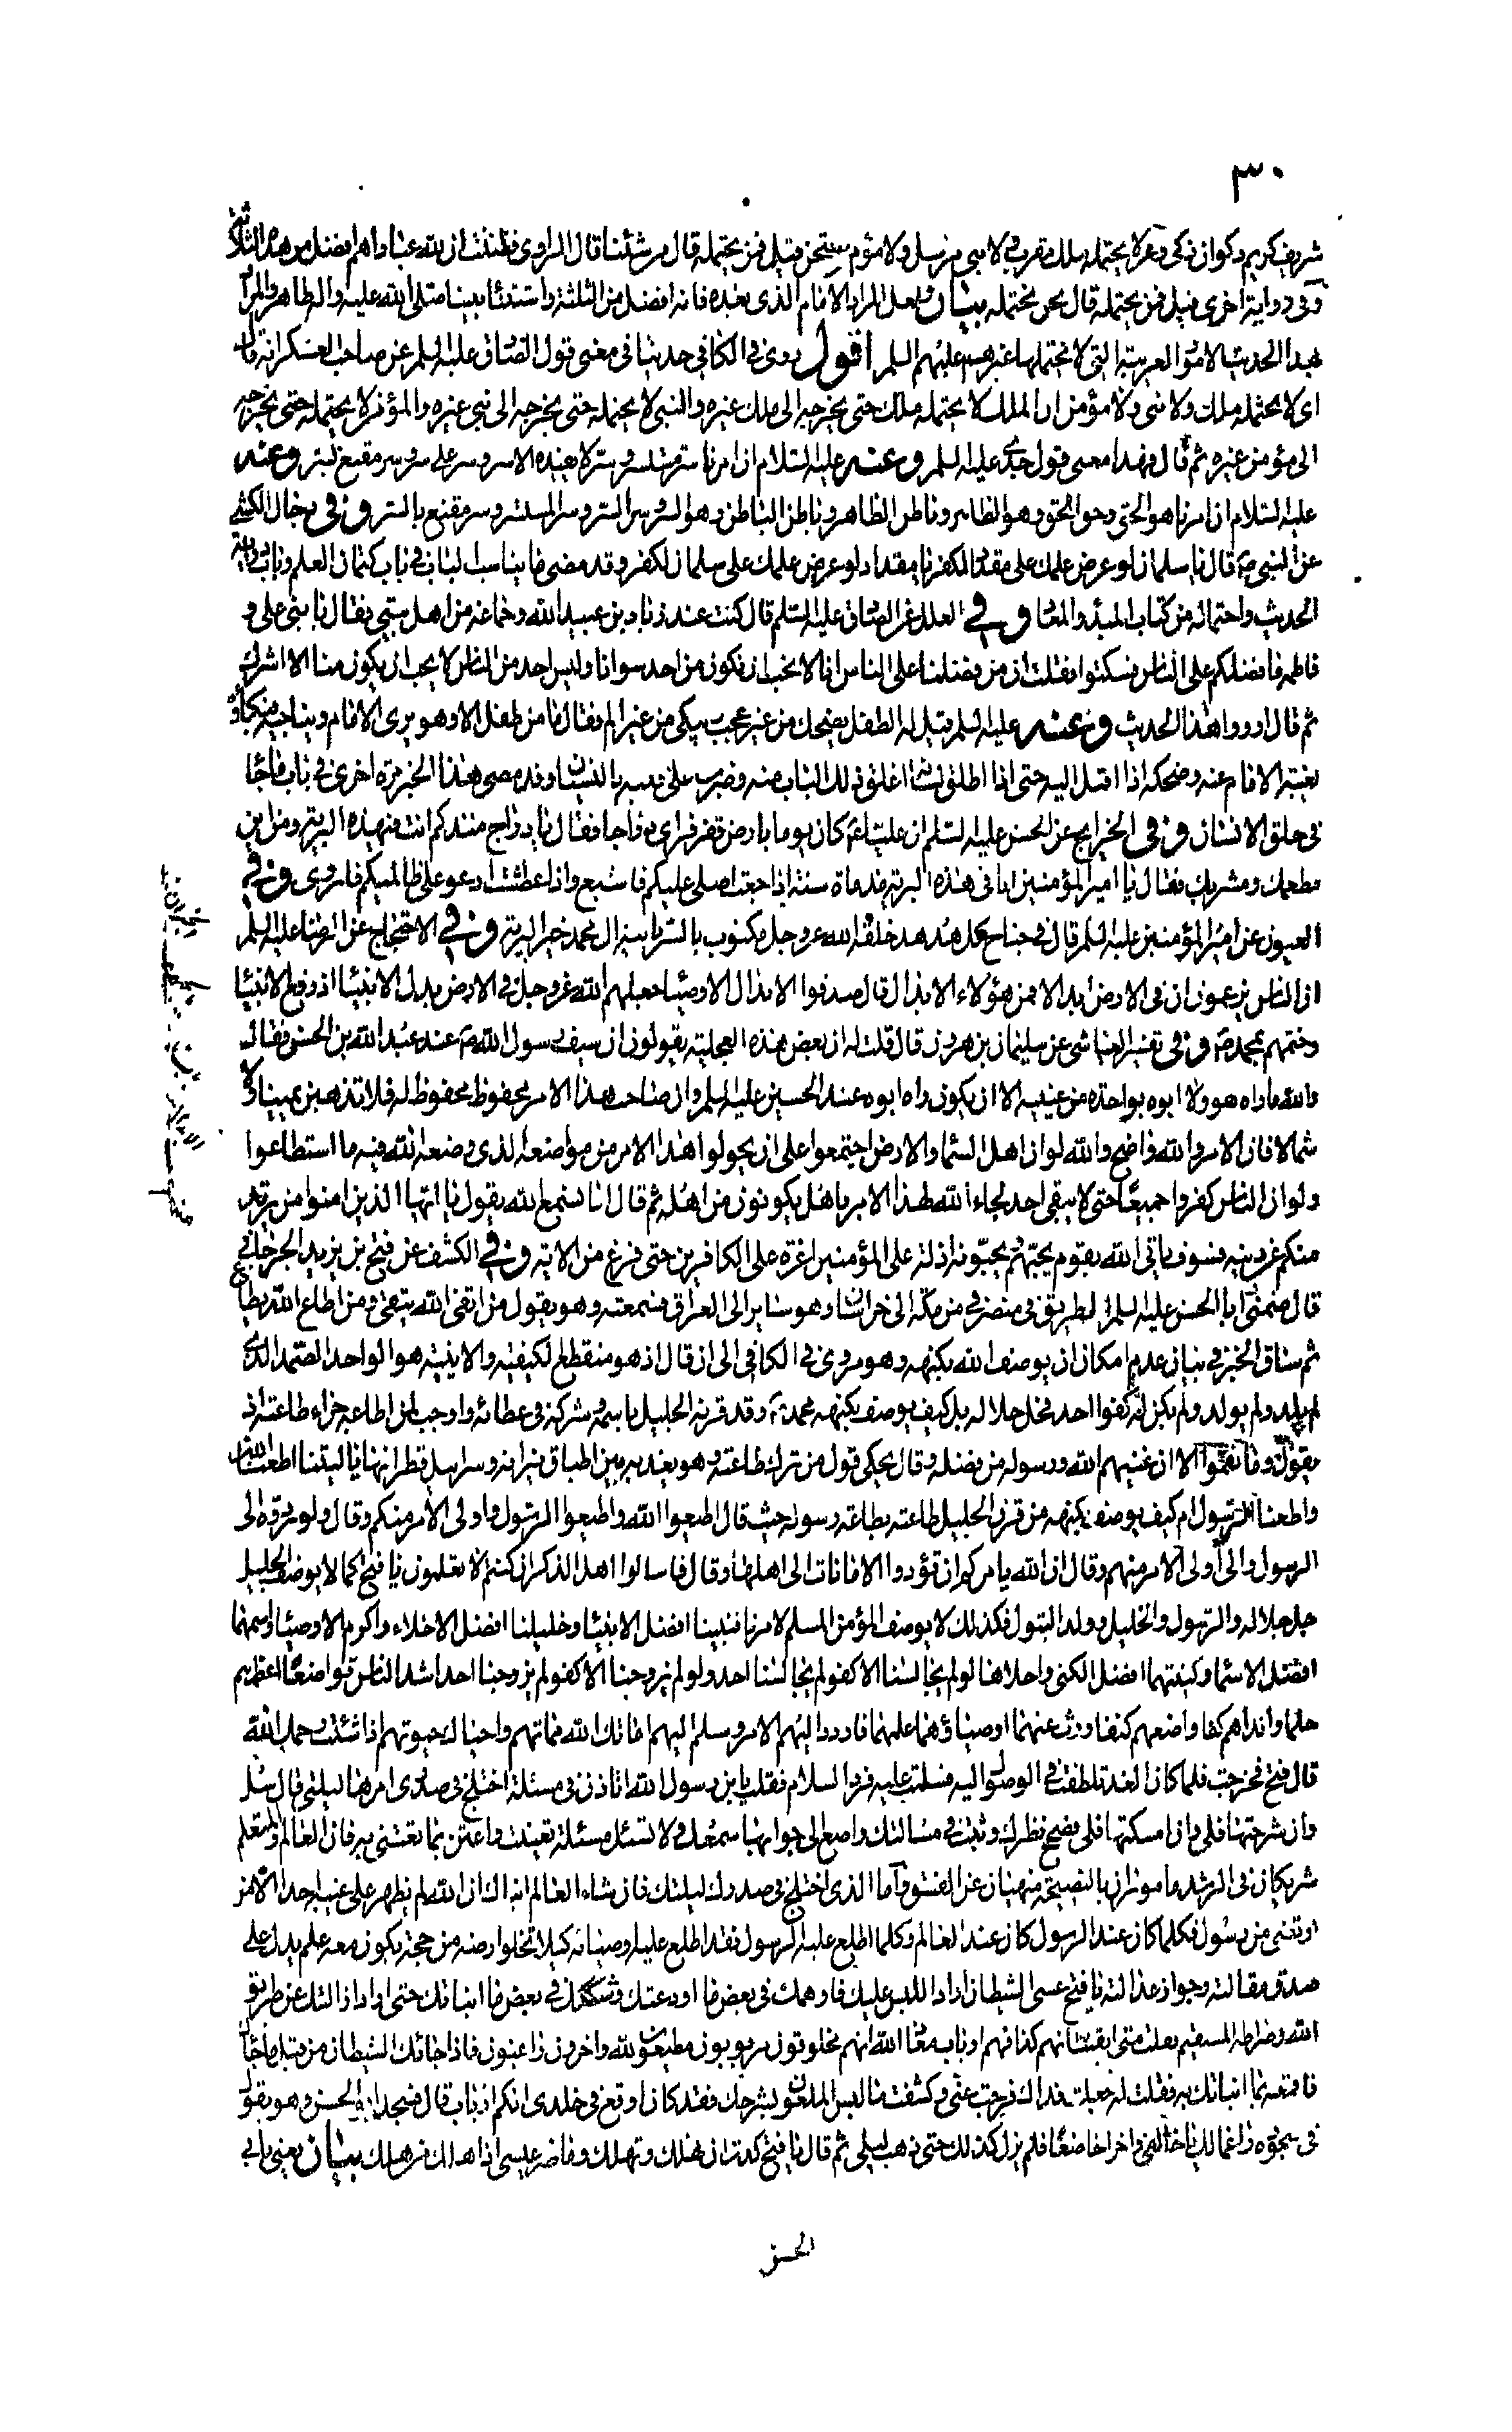 ٣٠
شريف كريم ذكوان ذكى وعر لا يحتمله ملك مقرب ولا نبى مرسل ولا مؤمن ممتحن قيل فمن يحتمله قال من شئنا قال الراوى فظننت ان لله عبادا هم افضل من هؤلاء الثلاثة
وفى رواية اخرى قيل فمن يحتمله قال نحن نحتمله بيان ولعل المراد الامام الذى بعده فانه افضل من الثلثة واستثنا نبينا صلى الله عليه واله ظاهر والمراد
بهذا الحديث الامور الغريبة التى لا يحتملها غيرهم عليهم السلم اقول روى فى الكافى حديثا فى معنى قول الصادق عليه السلم عن صاحب العسكر انه قال
اى لا يحتمله ملك ولا نبى ولا مؤمن ان الملك لا يحتمله ملك حتى يخرجه الى ملك غيره والنبى لا يحتمله حتى يخرجه الى نبى غيره والمؤمن لا يحتمله حتى يخرجه
الى مؤمن غيره ثم قال فهذا معنى قول جدى عليه السلم وعنه عليه السلام ان امرنا سر مستسر وسر لا يفيده الا سر وسر على سر وسر مقنع بسر وعنه
عليه السلام ان امرنا هو الحق وحق الحق وهو الظاهر وباطن الظاهر وباطن الباطن وهو السر وسر السر وسر المستسر وسر مقنع بالسر وفى رجال الكشى
عن النبى ص قال يا سلمان لو عرض علمك على مقداد لكفر يا مقداد لو عرض علمك على سلمان لكفر وقد مضى ما يناسب الباب فى باب كتمان العلم وباب رواية
الحديث واحتماله من كتاب المبدء والمعاد وفى العلل عن الصادق عليه السلم قال كنت عند زياد بن عبيد الله وجماعة من اهل بيتى فقال يا بنى على و
فاطمة ما فضلكم على الناس فسكتوا فقلت ان من فضلنا على الناس انا لا نحب ان نكون من احد سوانا وليس احد من الناس لا يحب ان يكون منا الا اشرك
ثم قال ارووا هذا الحديث وعنه عليه السلم قيل له الطفل يضحك من غير عجب ويبكى من غير الم فقال ما من طفل الا وهو يرى الامام ويناجيه فبكاؤه
لغيبة الامام عنه وضحكه اذا اقبل اليه حتى اذا اطلق لسانه اغلق ذلك الباب عنه وضرب على قلبه بالنسيان وقد مضى هذا الخبر مرة اخرى فى باب ما جاء
فى خلق الانسان وفى الخرايج عن الحسن عليه السلم ان عليا ع كان يوما بارض قفر فراى دراجا فقال يا دراج منذ كم انت فى هذه البرية ومن اين
مطعمك ومشربك فقال يا امير المؤمنين انا فى هذه البرية منذ مائة سنة اذا جعت اصلى عليكم فاشبع واذا عطشت ادعو على ظالميكم فاروى وفى
العيون عن امير المؤمنين عليه السلم قال فى جناح كل هدهد خلقه الله عز وجل مكتوب بالسريانية ال محمد خير البرية وفى الاحتجاج عن الرضا عليه السلم
ان الناس يزعمون ان فى الارض ابدالا فمن هؤلاء الابدال قال صدقوا الابدال الاوصياء جعلهم الله عز وجل فى الارض بدل الانبياء اذ رفع الانبياء
وختمهم بمحمد ص وفى تفسير العياشى عن سليمان بن هرون قال قلت له ان بعض هذه العجلية يقولون ان سيف رسول الله ص عند عبد الله بن الحسن فقال
والله ما راه هو ولا ابوه بواحدة من عينيه الا ان يكون راه ابوه عند الحسين عليه السلم وان صاحب هذا الامر محفوظ محفوظ له فلا تذهبن يمينا ولا
شمالا فان الامر والله واضح والله لو ان اهل السماء والارض اجتمعوا على ان يحولوا هذا الامر من مواضعه الذى وضعه الله فيه ما استطاعوا
ولو ان الناس كفروا جميعا حتى لا يبقى احد لجاء الله لهذا الامر باهل يكونون من اهله ثم قال اما تسمع الله يقول يا ايها الذين امنوا من يرتد
منكم عن دينه فسوف ياتى الله بقوم يحبهم ويحبونه اذلة على المؤمنين اعزة على الكافرين حتى فرغ من الاية وفى الكشف عن فتح بن يزيد الجرجانى
قال ضمنى وابا الحسن عليه السلم الطريق فى منصرفى من مكة الى خراسان وهو ساير الى العراق فسمعته وهو يقول من اتقى الله يتقى ومن اطاع الله يطاع
ثم ساق الخبر فى بيان عدم امكان ان يوصف الله بكنهه وهو مروى فى الكافى الى ان قال اذ هو منقطع الكيفية والاينية هو الواحد الصمد الذى
لم يلد ولم يولد ولم يكن له كفوا احد فجل جلاله بل كيف يوصف بكنهه محمد ص وقد قرنه الجليل باسمه وشركه فى عطائه واوجب لمن اطاعه جزاء طاعته اذ
يقول وما نقموا الا ان اغنيهم الله ورسوله من فضله وقال يحكى قول من ترك طاعته وهو يعذبه بين اطباق نيرانه وسرابيل قطرانها يا ليتنا اطعنا الله
واطعنا الرسول ام كيف يوصف بكنهه من قرن الجليل طاعته بطاعة رسوله حيث قال اطيعوا الله واطيعوا الرسول واولى الامر منكم وقال ولو ردوه الى
الرسول والى اولى الامر منهم وقال ان الله يامركم ان تؤدوا الامانات الى اهلها وقال فاسالوا اهل الذكر ان كنتم لا تعلمون يا فتح كما لا يوصف الجليل
جل جلاله والرسول والخليل وولد البتول فكذلك لا يوصف المؤمن المسلم لامرنا فنبينا افضل الانبياء وخليلنا افضل الاخلاء واكرم الاوصياء واسمهما
افضل الاسماء وكنيتهما افضل الكنى واحلاها لو لم يجالسنا الا كفو لم يجالسنا احد ولو لم يزوجنا الا كفو لم يزوجنا احد اشد الناس تواضعا اعظمهم
حلما وانداهم كفا وامنعهم كنفا ورث عنهما اوصياؤهما علمهما فاردد اليهم الامر وسلم اليهم اماتك الله مماتهم واحياك حيوتهم اذا شئت رحمك الله
قال فتح فخرجت فلما كان الغد تلطفت فى الوصول اليه فسلمت عليه فرد السلام فقلت يا بن رسول الله اتاذن فى مسئلة اختلج فى صدرى امرها ليلتى قال سل
وان شرحتها فلى وان امسكتها فلى فصحح نظرك وتثبت فى مسالتك واصغ الى جوابها سمعك ولا تسئل مسئلة تعنت واعتن بما تعتنى به فان العالم والمتعلم
شريكان فى الرشد ماموران بالنصيحة منهيان عن الغش واما الذى اختلج فى صدرك ليلتك فان يشاء العالم انباك ان الله لم يظهر على غيبه احدا الا من
ارتضى من رسول فكلما كان عند الرسول كان عند العالم وكلما اطلع عليه الرسول فقد اطلع عليه اوصيائه كيلا تخلوا ارضه من حجة يكون معه علم يدل على
صدق مقالته وجواز عدالته يا فتح عسى الشيطان اراد اللبس عليك فاوهمك فى بعض ما اودعتك وشككك فى بعض ما انباتك حتى اراد ازالتك عن طريق
الله وصراطه المستقيم فقلت متى ايقنت انهم كذا فهم ارباب معاذ الله انهم مخلوقون مربوبون مطيعون لله داخرون راغبون فاذا جائك الشيطان من قبل ما جاءك
فاقمعه بما انباتك به فقلت له جعلت فداك فرجت عنى وكشفت ما لبس الملعون بشرحك فقد كان اوقع فى خلدى انكم ارباب قال فسجد ابو الحسن وهو يقول
فى سجوده راغما لك يا خالقى داخرا خاضعا فلم يزل كذلك حتى ذهب ليلى ثم قال يا فتح كدت ان تهلك وتهلك وما ضر عيسى اذا هلك من هلك بيان يعنى بابى
الحسن